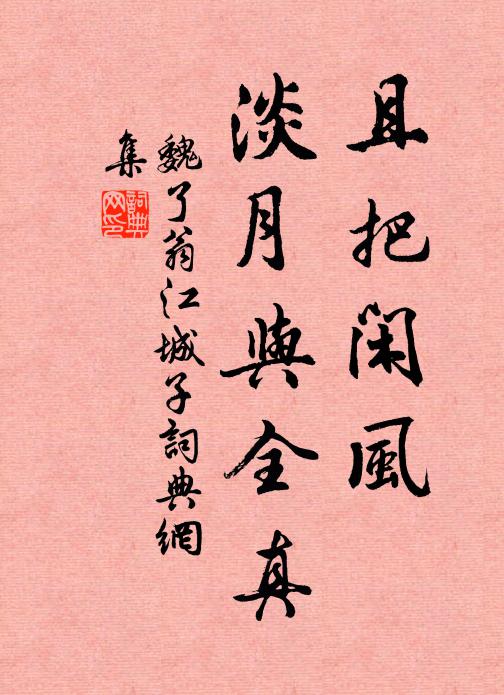 且把閑風
淡月與全真
魏了翁江城子詞典網
集
詞典網印